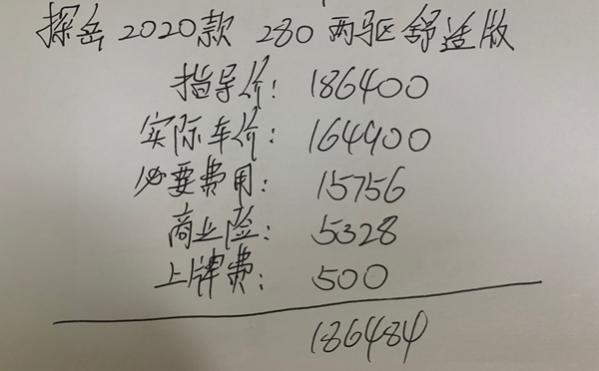 探岳2020款 280两驱舒适版
指导价: 186400
实际车价: 164900
必要费用: 15756
商业险: 5328
上牌费: 500
186484